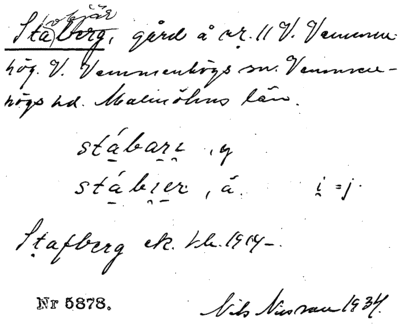 Stafberg, gård å nr. 11 V. Vemmen-
hög. V. Vemmenhögs sn. Vemmen-
högs hd. Malmöhus län.
stábarı, y
stábıer, ä. i̯ = j.
Stafberg ek. kk. 1914–
Nr 5878. Nils Nilsson 1934.